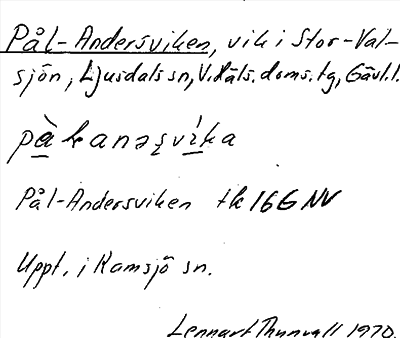 Pål-Andersviken, vik i Stor-Val-
sjön, Ljusdals sn, V.Häls. doms. tg, Gävl.l.
pàkanəʂvìka
Pål-Andersviken tk 16G NV
Uppt. i Ramsjö sn.
Lennart Thunvall 1970.